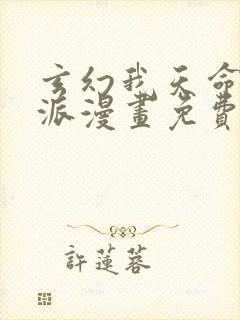 玄幻我天命
派漫畫免費
許蓮蓉